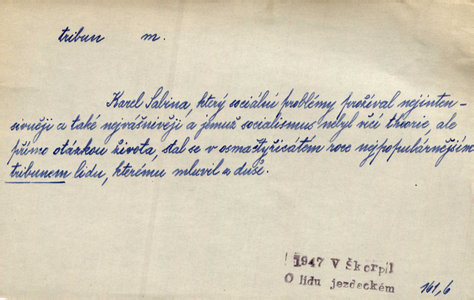 tribun m.
Karel Sabina, který sociální problémy prožíval nejinten-
sivněji a také nejvášnivěji a jemuž socialismus nebyl věcí theorie, ale
přímo otázkou života, stal se v osmačtyřicátém roce nejpopulárnějším
tribunem lidu, kterému mluvil z duše.
! 1947 V Škorpil
O lidu jezdeckém 161,6